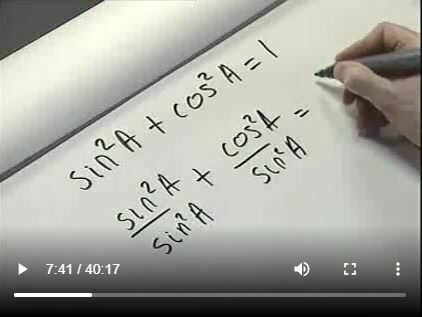 sin²A + cos²A = 1
sin²A/sin²A + cos²A/sin²A =
7:41 / 40:17